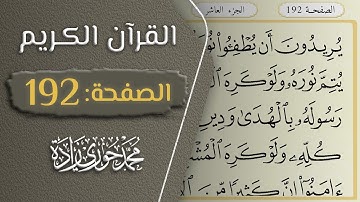 القرآن الكريم
الصفحة: 192
محمد حوري زادة
الصفحـة 192
الجزء العاشر
يُرِيدُونَ أَن يُطْفِـُٔوا۟ نُورَ
يُتِمَّ نُورَهُۥ وَلَوْ كَرِهَ
رَسُولَهُۥ بِٱلْهُدَىٰ وَدِينِ
كُلِّهِۦ وَلَوْ كَرِهَ ٱلْمُشْ
ءَامَنُوٓا۟ إِنَّ كَثِيرًا مِّنَ